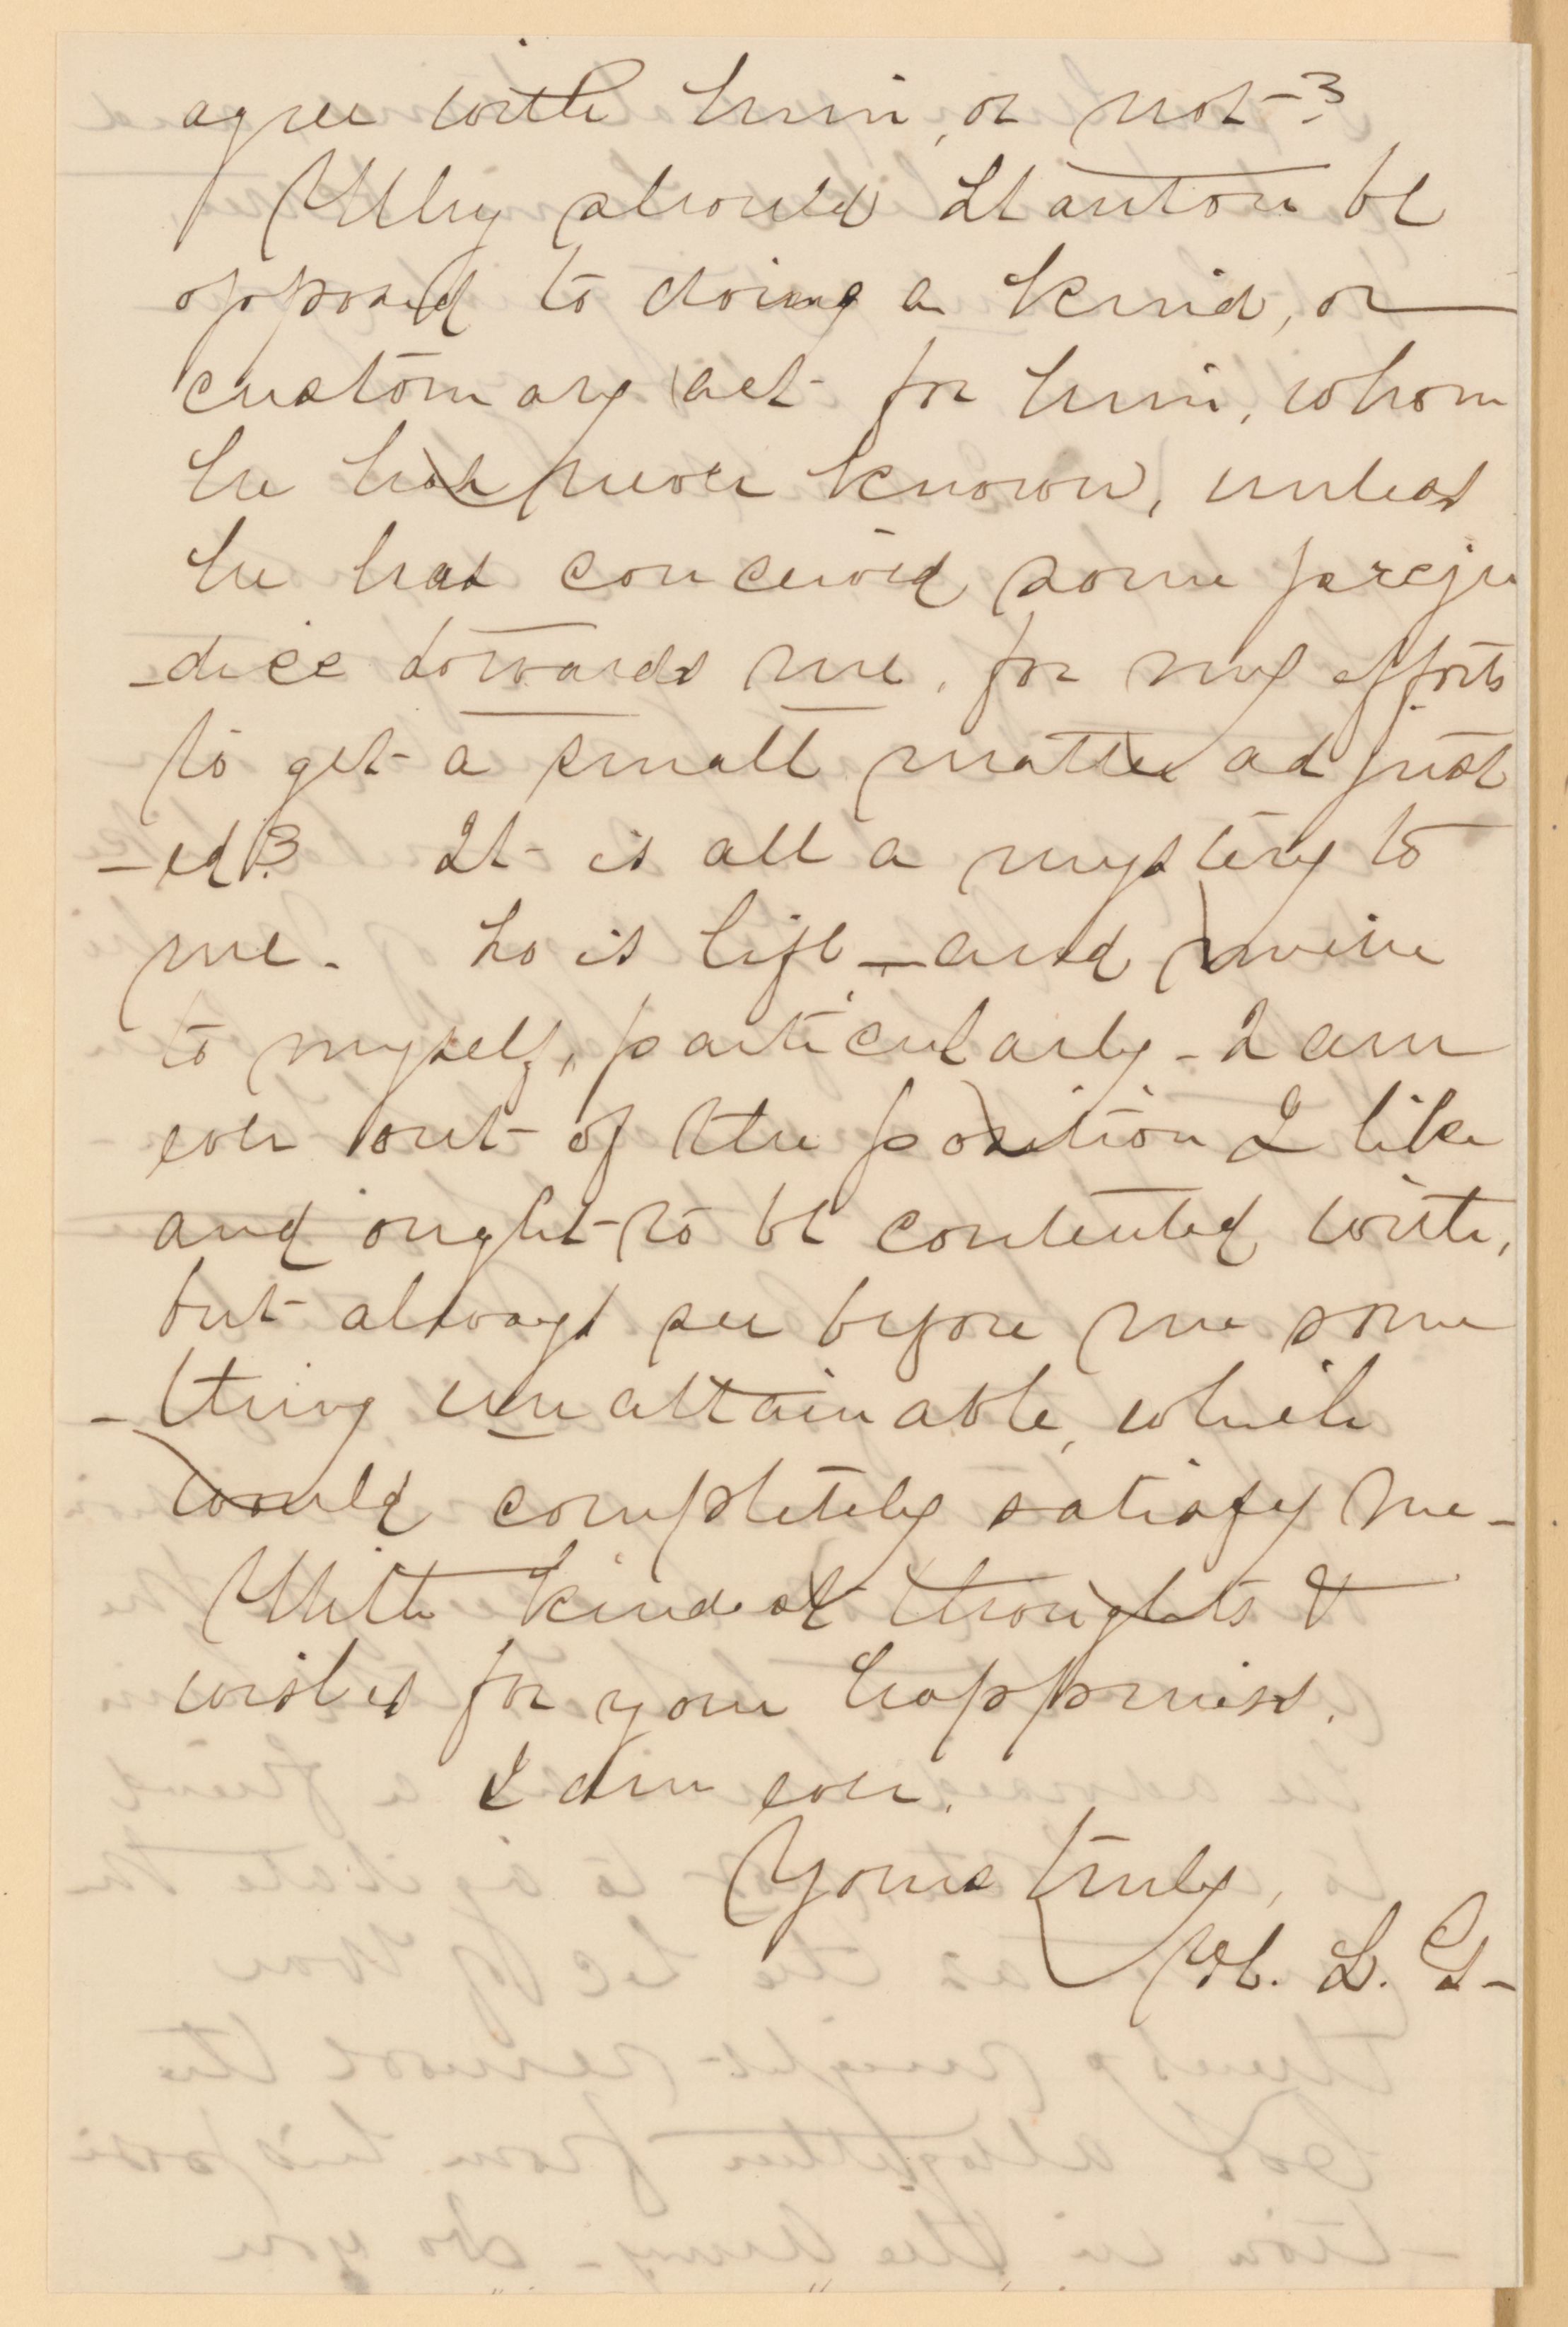 agree with him, or not-?
Why should Stanton be
opposed to doing a kind, or
customary act for him, whom
he has never known, unless
he has conceived some preju
-dice towards me, for my efforts
to get a small matter adjust
-ed? It is all a mystery to
me. So is life - and mine
to myself, particularly - I am
ever out of the position I like
and ought to be contented with,
but always see before me some
-thing unattainable, which
would completely satisfy me -
With kindest thoughts &
wishes for your happiness.
I am ever.
Yours truly,
L. G-